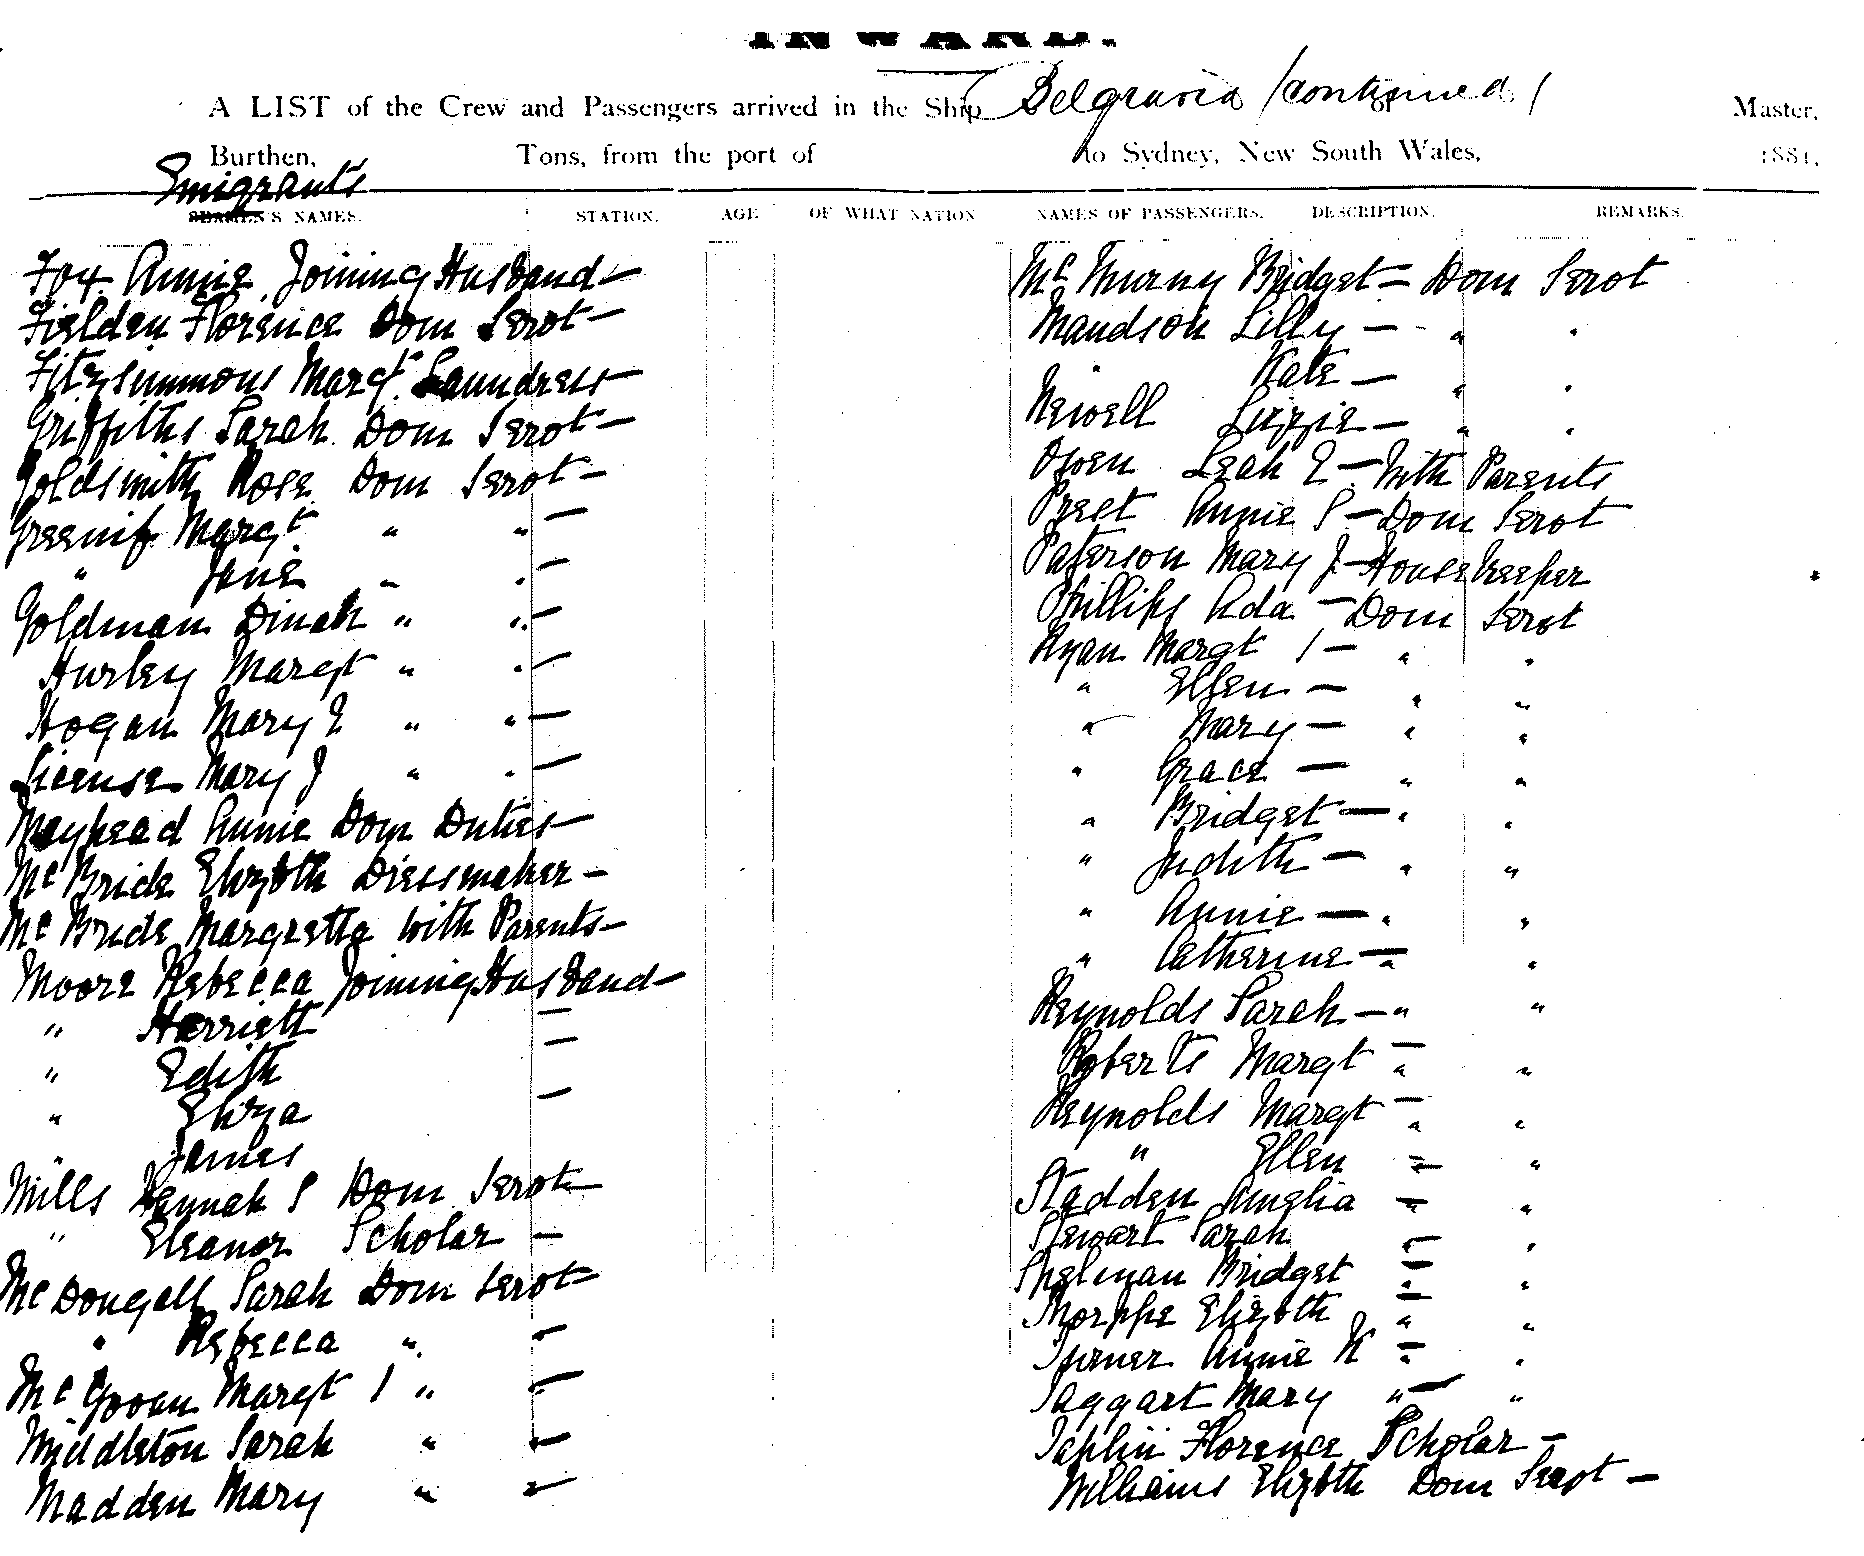 INWARD.
A LIST of the Crew and Passengers arrived in the Ship Belgravia (continued) Master,
Burthen, Tons, from the port of to Sydney, New South Wales, 1881,
Emigrants
SEAMEN'S NAMES. STATION. AGE OF WHAT NATION NAMES OF PASSENGERS. DESCRIPTION. REMARKS.
Fox Annie Joining Husband —
Fielden Florence Dom Servt —
Fitzsimmons Margt. Laundress —
Griffiths Sarah Dom Servt —
Goldsmith Rose Dom Servt —
Margt " " —
" Jane " " —
Goldman Dinah " " —
Hurley Margt " " —
Hogan Mary E " " —
License Mary J " " —
Mayhead Annie Dom Duties —
McBride Elizbth Dressmaker —
McBride Margretta With Parents —
Moore Rebecca Joining Husband —
" Harriett —
" Edith —
" Eliza —
" James
Mills Hannah S Dom Servt —
" Eleanor Scholar —
McDougall Sarah Dom Servt —
" Rebecca " —
McGovan Margt 1 " —
Middleton Sarah " —
Madden Mary " —
Mc Bridget — Dom Servt
Maudson Lilly — " "
" Kate — " "
Newell Lizzie — " "
Owen Leah E — With Parents
Annie S — Dom Servt
Paterson Mary J — House Keeper
Phillips Ada — Dom Servt
Ryan Margt 1 — " "
" Ellen — " "
" Mary — " "
" Grace — " "
" Bridget — " "
" Judith — " "
" Annie — " "
" Catherine — " "
Reynolds Sarah — " "
Roberts Margt — " "
Reynolds Margt — " "
" Ellen — " "
Stadden Amelia — " "
Stewart Sarah — " "
Spelman Bridget — " "
Thorppe Elizbth — " "
Turner Annie K — " "
Taggart Mary " — "
Taplin Florence Scholar —
Williams Elizbth Dom Servt —